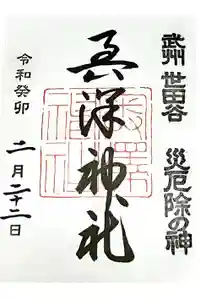 武州 世田谷 災厄除の神
奥澤神社
奥澤神社
令和癸卯
二月二十二日